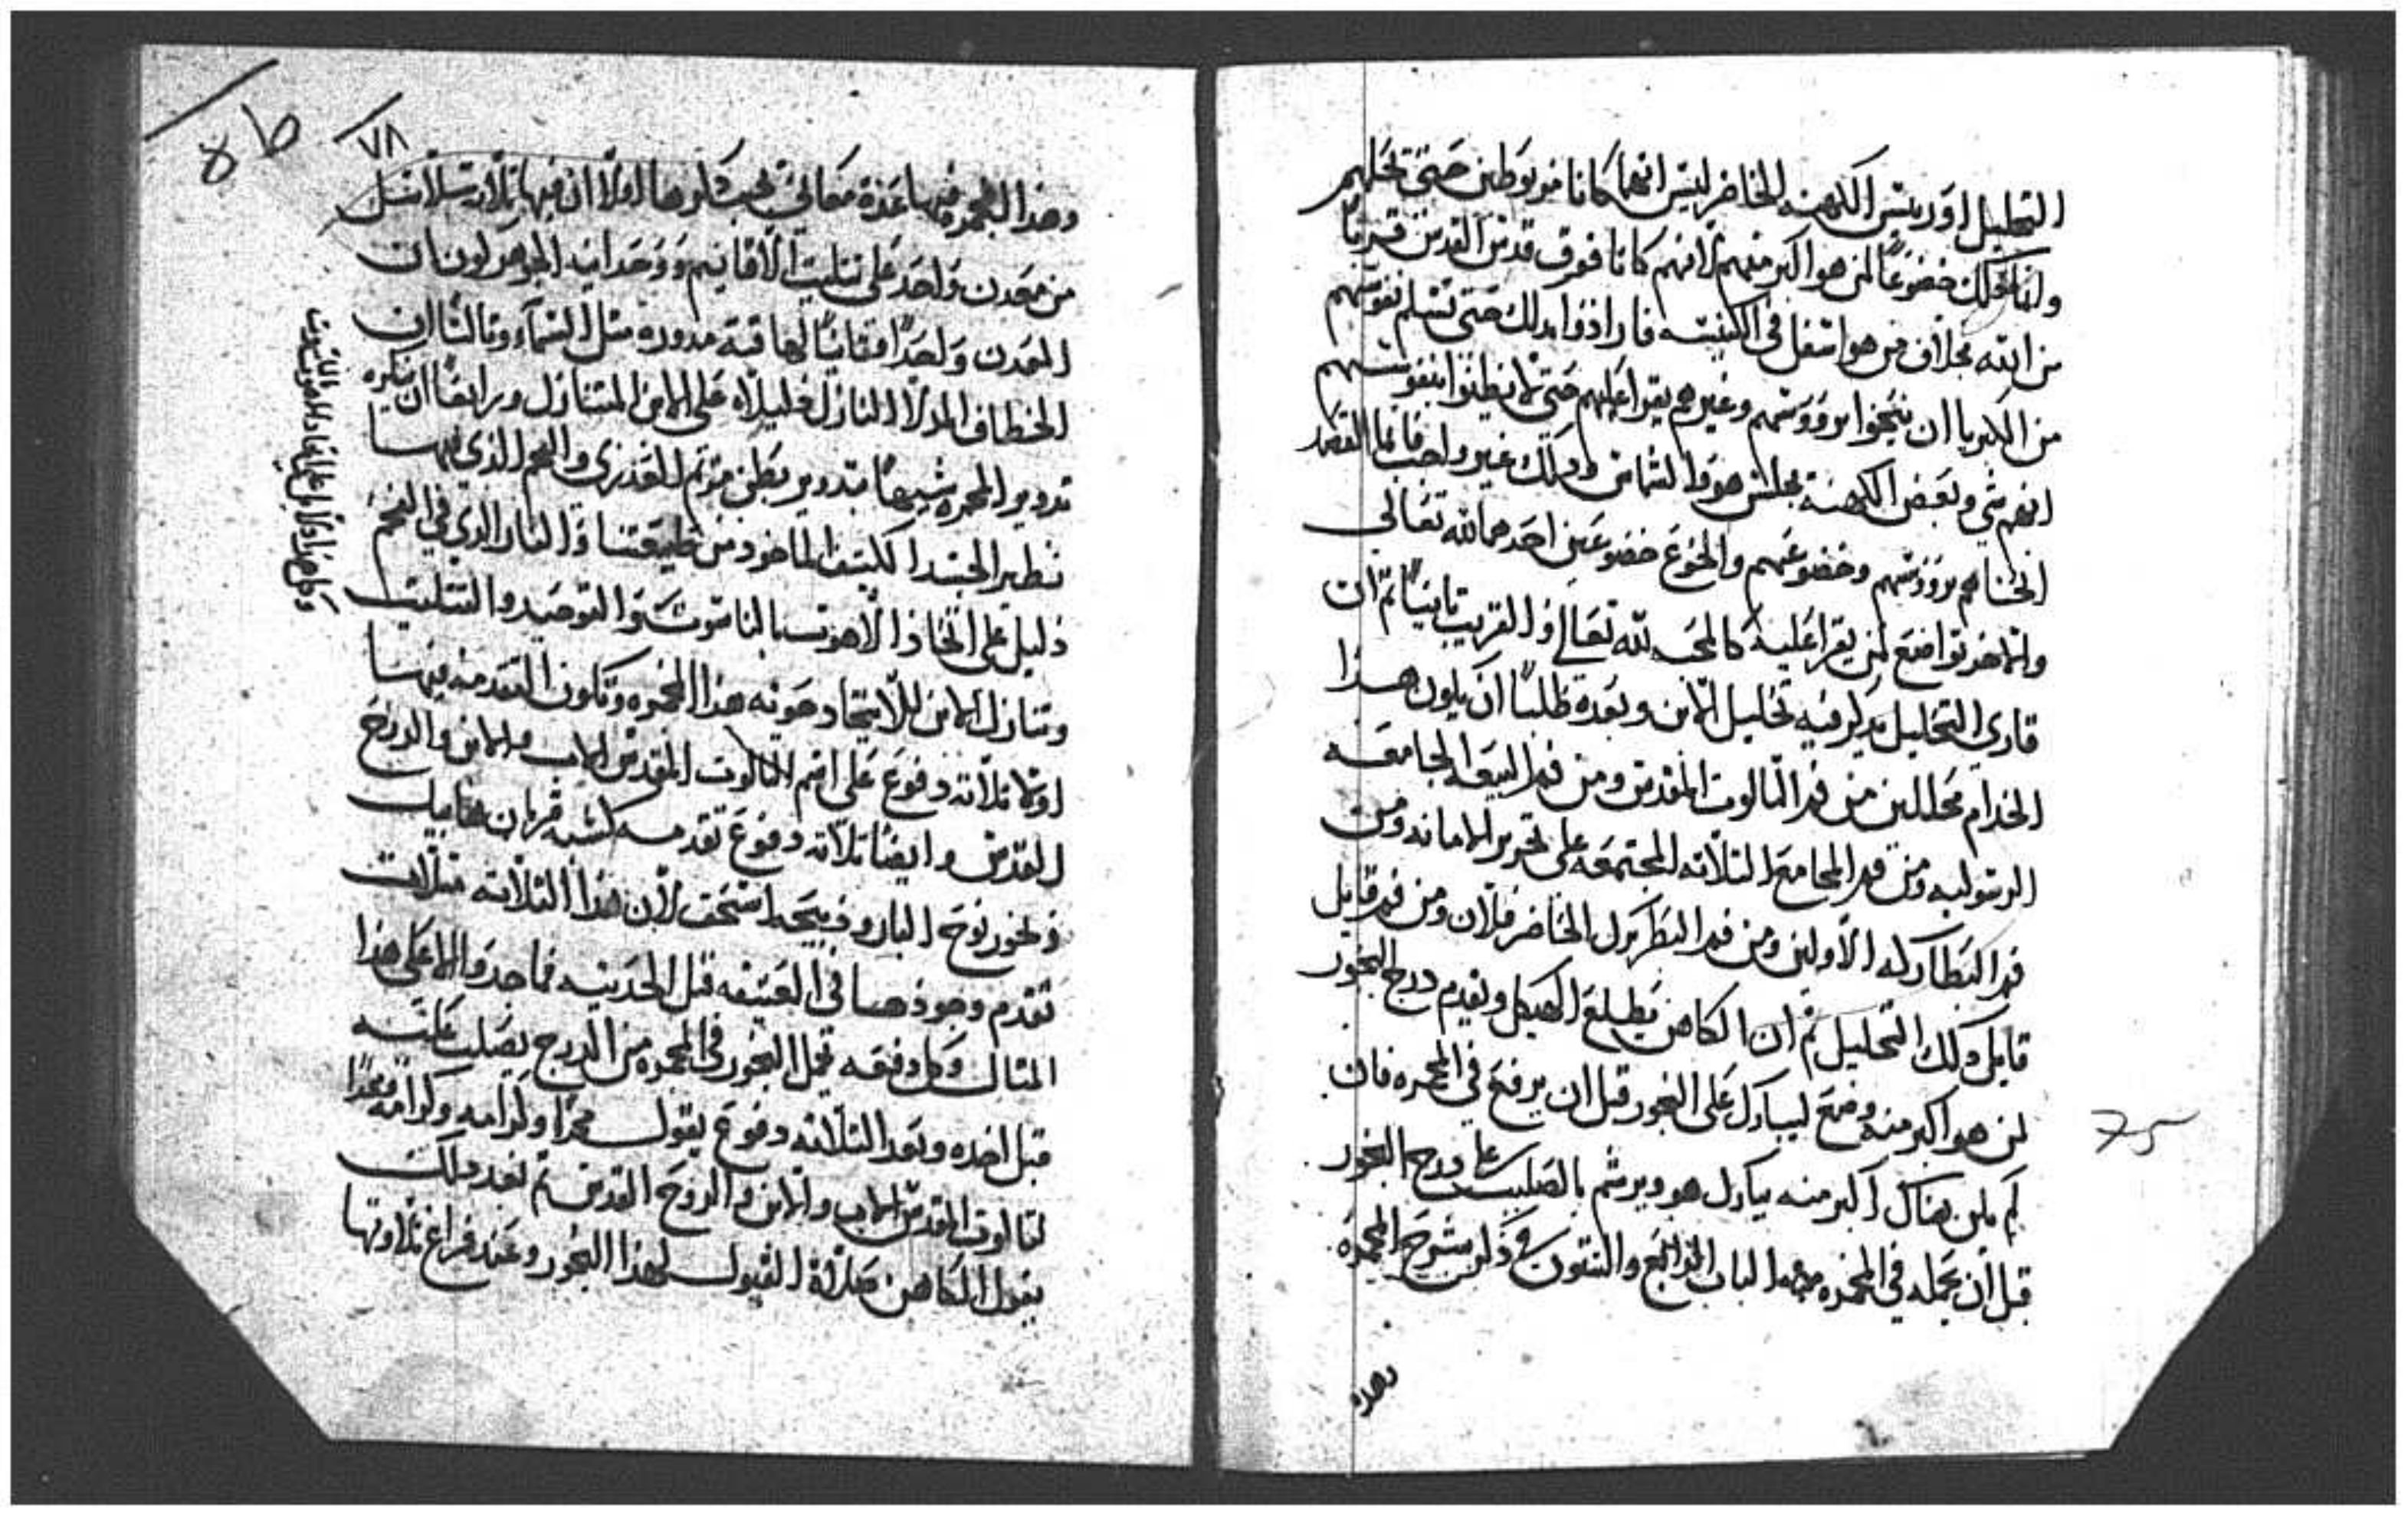 التحليل او رييس الكهنه الحاضر ليس انهما كانا مربوطين حتى تحلهم
وانما ذلك خضوعًا لمن هو اكبر منهم لانهم كانا فوق قدس القدس قريبًا
من الله بخلاف من هو اسفل في الكنيسه فارادوا بدلك حتى تسلم نفوسهم
من الكبريا ان ينحنوا بروؤسهم وغيرهم يقرا عليهم حتى لا يظنوا بنفوسهم
انهم شي وبعض الكهنة يجلس هو والشماس ودلك غير واجب فانما القصد
انحناهم بروؤسهم وخضوعهم والخضوع خضوعين احدهما لله تعالى
والاخر تواضع لمن يقرا عليه كالمحبه لله تعالى والقريب تانيًا تم ان
قاري التحليل يدكر فيه تحليل الابن وبعده طلبًا ان يكون هدا
الخدام محاللين من فم التالوت المقدس ومن فم البيعه الجامعه
الرسوليه ومن فم المجامع التلاته المجتمعه على تحرير الامانه ومن
فم البطاركه الاولين ومن فم البطريرك الحاضر فلان ومن فم قايل
قايل دلك التحليل تم ان الكاهن يطلع الهيكل ويقدم درج البخور
لمن هو اكبر منه وضع ليبارك على البخور قبل ان يرفع في المجمره فان
لم يكن هناك اكبر منه يبارك هو ويرشم بالصليب على درج البخور
قبل ان يجعله في المجمره وهدا الباب الرابع والستون في دكر شرح المجمره
وهده
75
٧٨
وهذا المجمره فيها عدة معاني يجب دكرها اولًا ان فيها تلات سلاسل
من معدن واحد على تتليت الاقانيم ووحدانيه الجوهر لون ان
المعدن واحدًا وتانيًا لها قبة مدوره متل السماء وتالتًا ان
الخطاف المدلا النازل دليلاه على الابن المتنازل ورابعًا ان
تدوير المجمره شبيهًا بتدوير بطن مرتم العذرى والفحم الذي فيها
نظير الجسد الكتيف الماخود من طبيعتنا والنار الدي في الفحم
دليل على اتحاد الاهوت بالناسوت والتوحيد والتتليت
وتنازل الابن للاتحاد حوته هذا المجمره وتكون التقدمه فيها
اولًا تلاته دفوع على اسم التالوت المقدس الاب والابن والروح
القدس وايضًا تلاته دفوع تقدمه كشبه قربان هابيل
وبخور نوح البار ودبيحة اسحق لان هذا التلاته متلات
تقدم وجودها في العتيقه قبل الحديته فما جدو الا على هذا
المتال وكل دفعه يجعل البخور في المجمره من الدرج يصلب عليه
قبل اخده وبعد التلاته دفوع يقول مجدًا واكرامه وكرامه ومجدًا
لتالوت المقدس الاب والابن والروح القدس تم بعد دلك
يقول الكاهن صلاة القبول لهذا البخور وعند فراغ تلاوتها